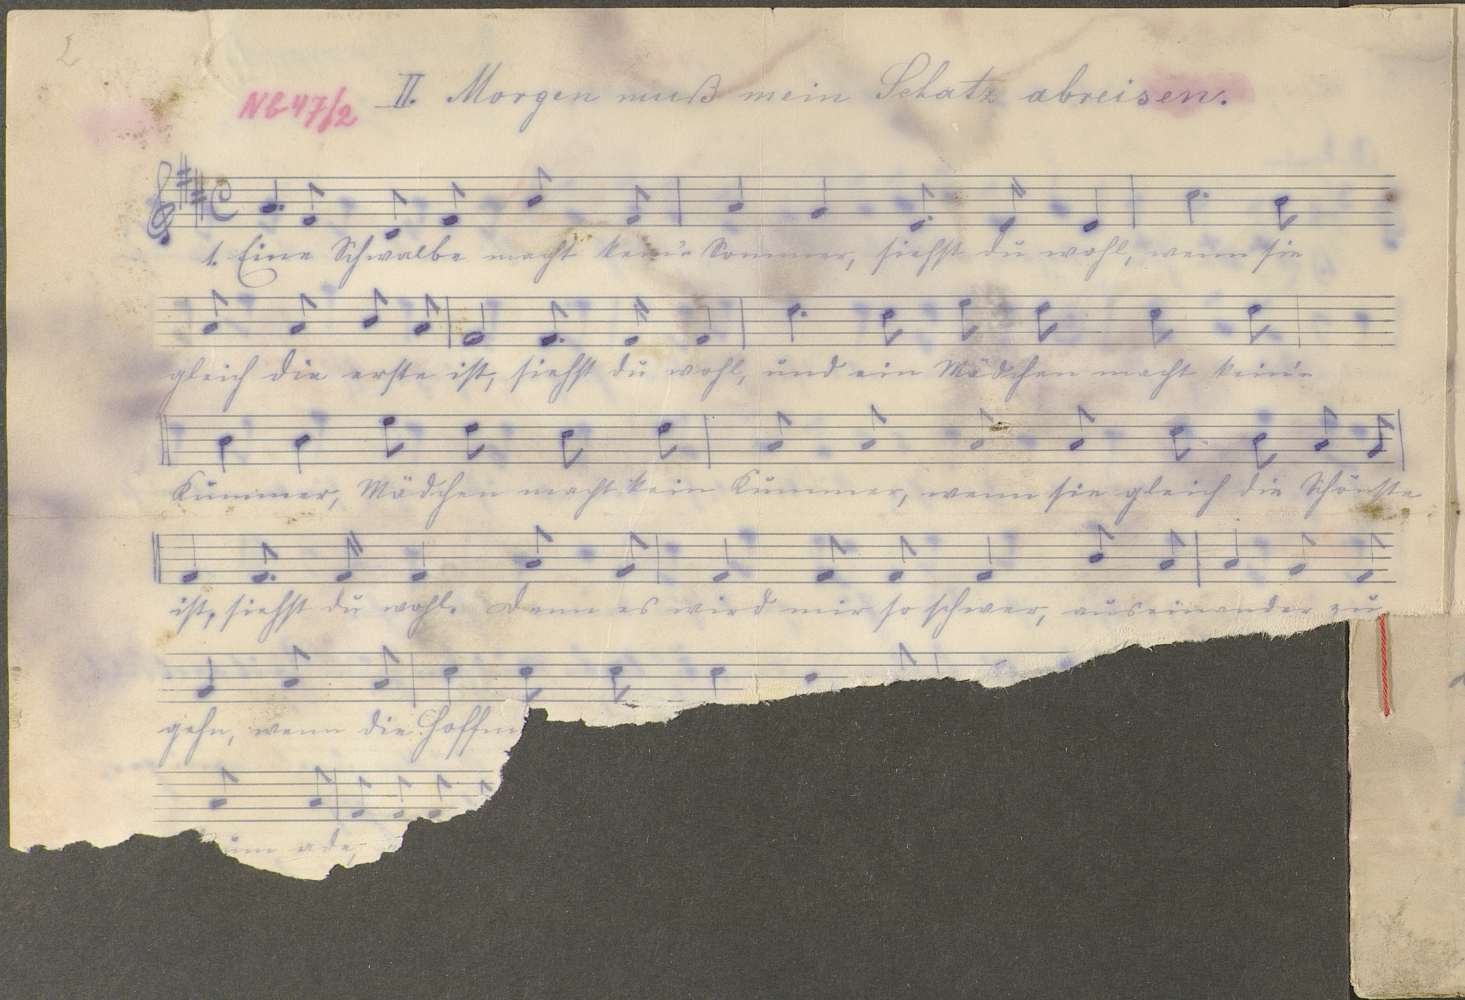 2
NB 47/2
II. Morgen muß mein Schatz abreisen.
1. Eine Schwalbe macht kein'n Sommer, siehst du wohl, wenn sie
gleich die erste ist, siehst du wohl, und ein Mädchen macht kein'n
Kummer, Mädchen macht kein Kummer, wenn sie gleich die Schönste
ist, siehst du wohl. Denn es wird mir so schwer, auseinander zu
gehn, wenn die Hoffn
um ade,